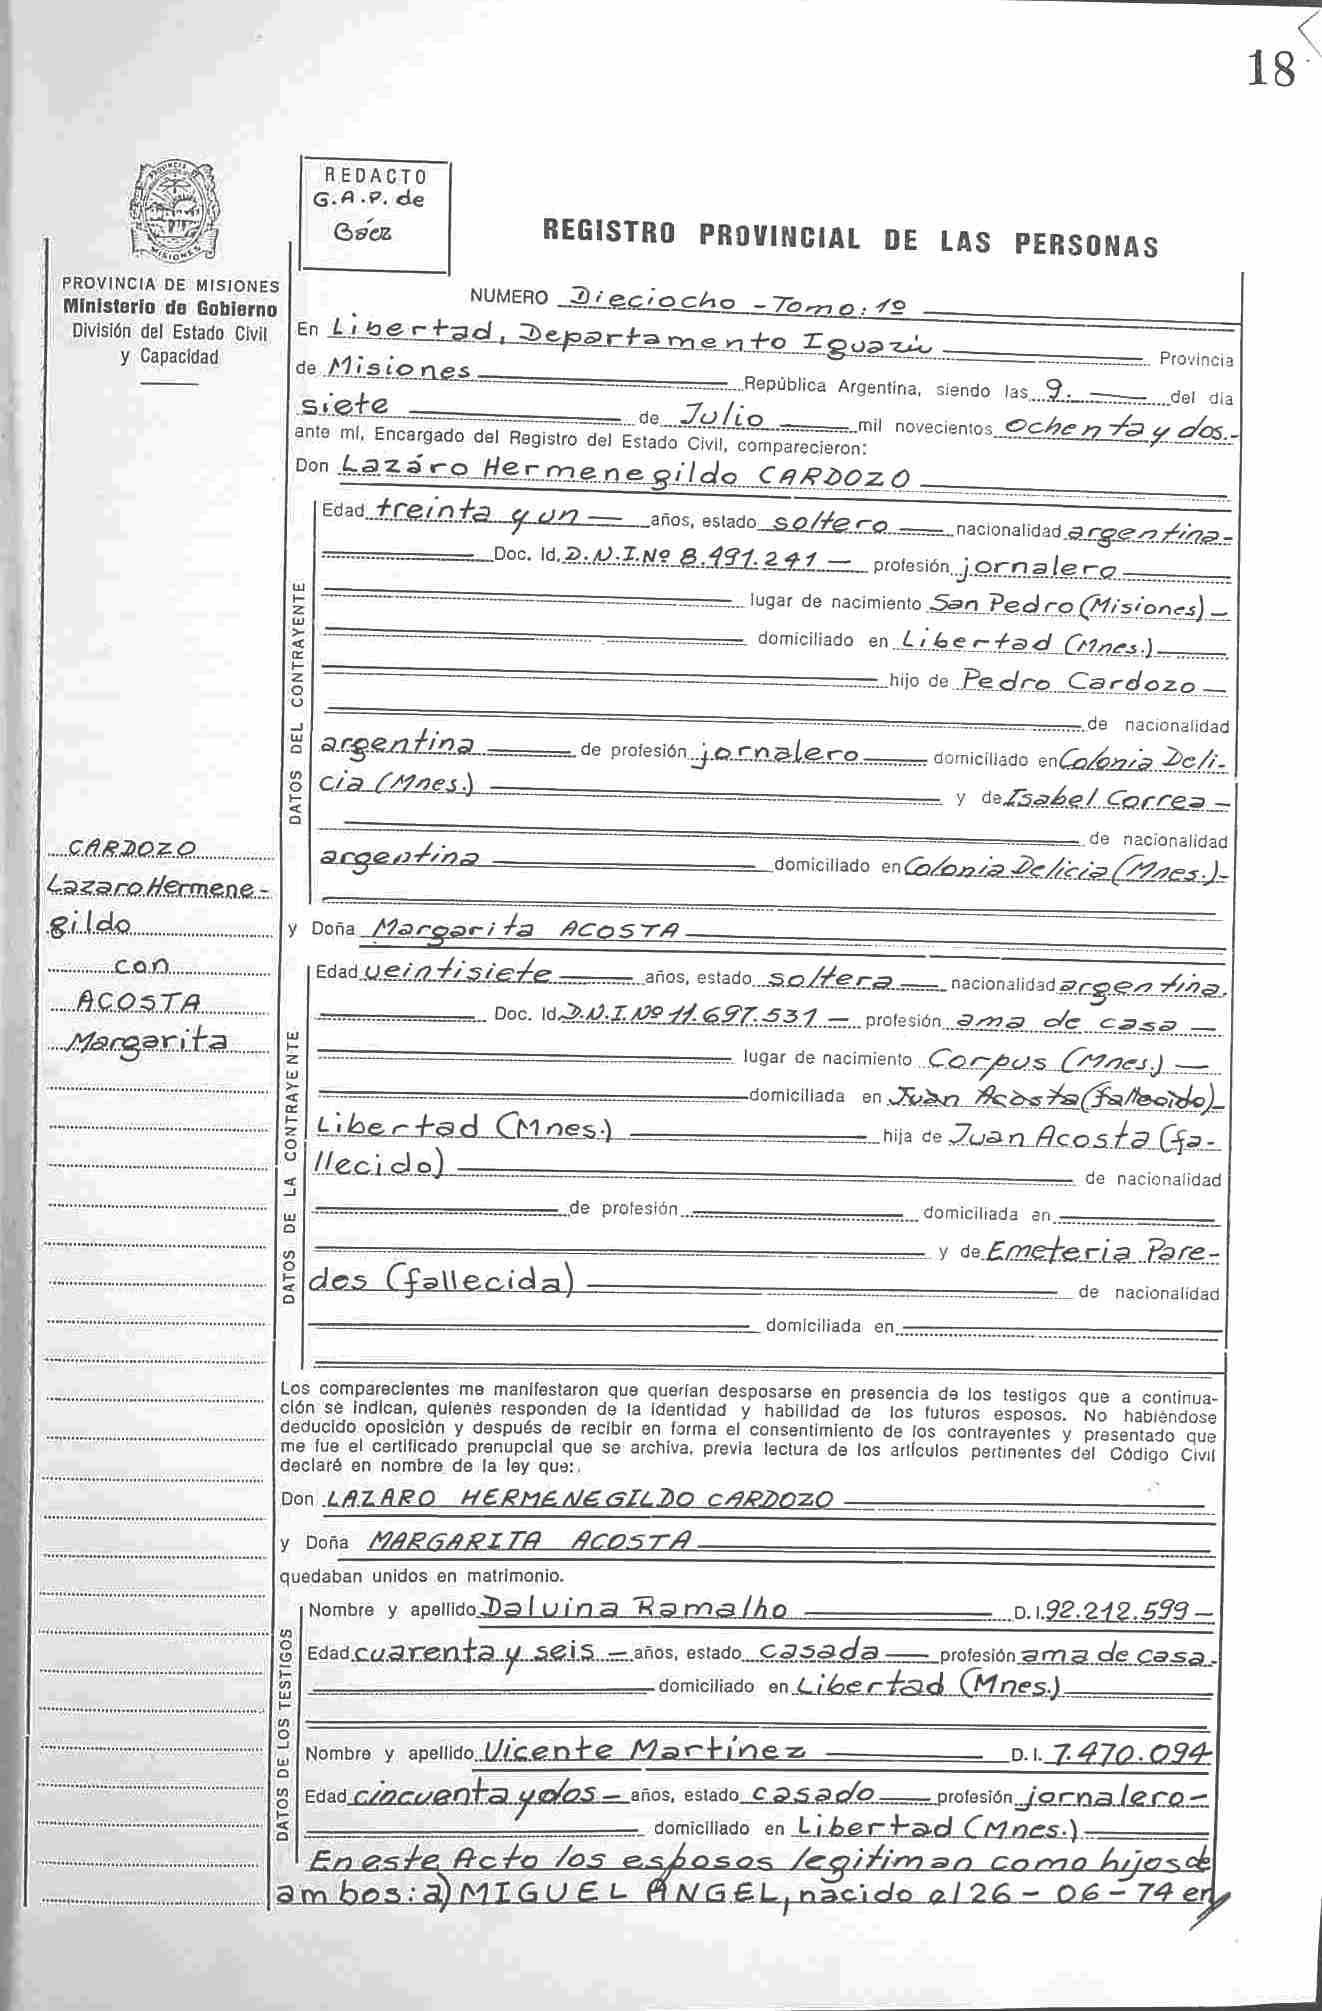 18
REDACTO
G.A.P. de
Báez
REGISTRO PROVINCIAL DE LAS PERSONAS
PROVINCIA DE MISIONES
Ministerio de Gobierno
División del Estado Civil
y Capacidad
NUMERO Dieciocho - Tomo: 1º
En Libertad, Departamento Iguazú Provincia
de Misiones República Argentina, siendo las 9. del día
siete de Julio mil novecientos Ochenta y dos.-
ante mí, Encargado del Registro del Estado Civil, comparecieron:
Don Lazáro Hermenegildo CARDOZO
DATOS DEL CONTRAYENTE
Edad treinta y un años, estado soltero nacionalidad argentina-
Doc. Id. D.N.I.Nº 8.491.241 profesión jornalero
lugar de nacimiento San Pedro (Misiones)
domiciliado en Libertad (Mnes.)
hijo de Pedro Cardozo
de nacionalidad
argentina de profesión jornalero domiciliado en Colonia Deli-
cia (Mnes.) y de Isabel Correa
de nacionalidad
argentina domiciliado en Colonia Delicia (Mnes.)-
CARDOZO
Lazaro Hermene-
gildo
con
ACOSTA
Margarita
y Doña Margarita ACOSTA
DATOS DE LA CONTRAYENTE
Edad veintisiete años, estado soltera nacionalidad argentina.
Doc. Id. D.N.I.Nº 11.697.531 profesión ama de casa
lugar de nacimiento Corpus (Mnes.)
domiciliada en Juan Acosta (fallecido)
Libertad (Mnes.) hija de Juan Acosta (fa-
llecido) de nacionalidad
de profesión domiciliada en
y de Emeteria Pare-
des (fallecida) de nacionalidad
domiciliada en
Los comparecientes me manifestaron que querían desposarse en presencia de los testigos que a continua-
ción se indican, quienes responden de la identidad y habilidad de los futuros esposos. No habiéndose
deducido oposición y después de recibir en forma el consentimiento de los contrayentes y presentado que
me fue el certificado prenupcial que se archiva, previa lectura de los artículos pertinentes del Código Civil
declaré en nombre de la ley que:
Don LAZARO HERMENEGILDO CARDOZO
y Doña MARGARITA ACOSTA
quedaban unidos en matrimonio.
DATOS DE LOS TESTIGOS
Nombre y apellido Daluina Ramalho D.I. 92.212.599
Edad cuarenta y seis años, estado casada profesión ama de casa.
domiciliado en Libertad (Mnes.)
Nombre y apellido Vicente Martinez D.I. 7.470.094
Edad cincuenta y dos años, estado casado profesión jornalero
domiciliado en Libertad (Mnes.)
En este Acto los esposos legitiman como hijos de
ambos: a) MIGUEL ANGEL, nacido el 26 - 06 - 74 en